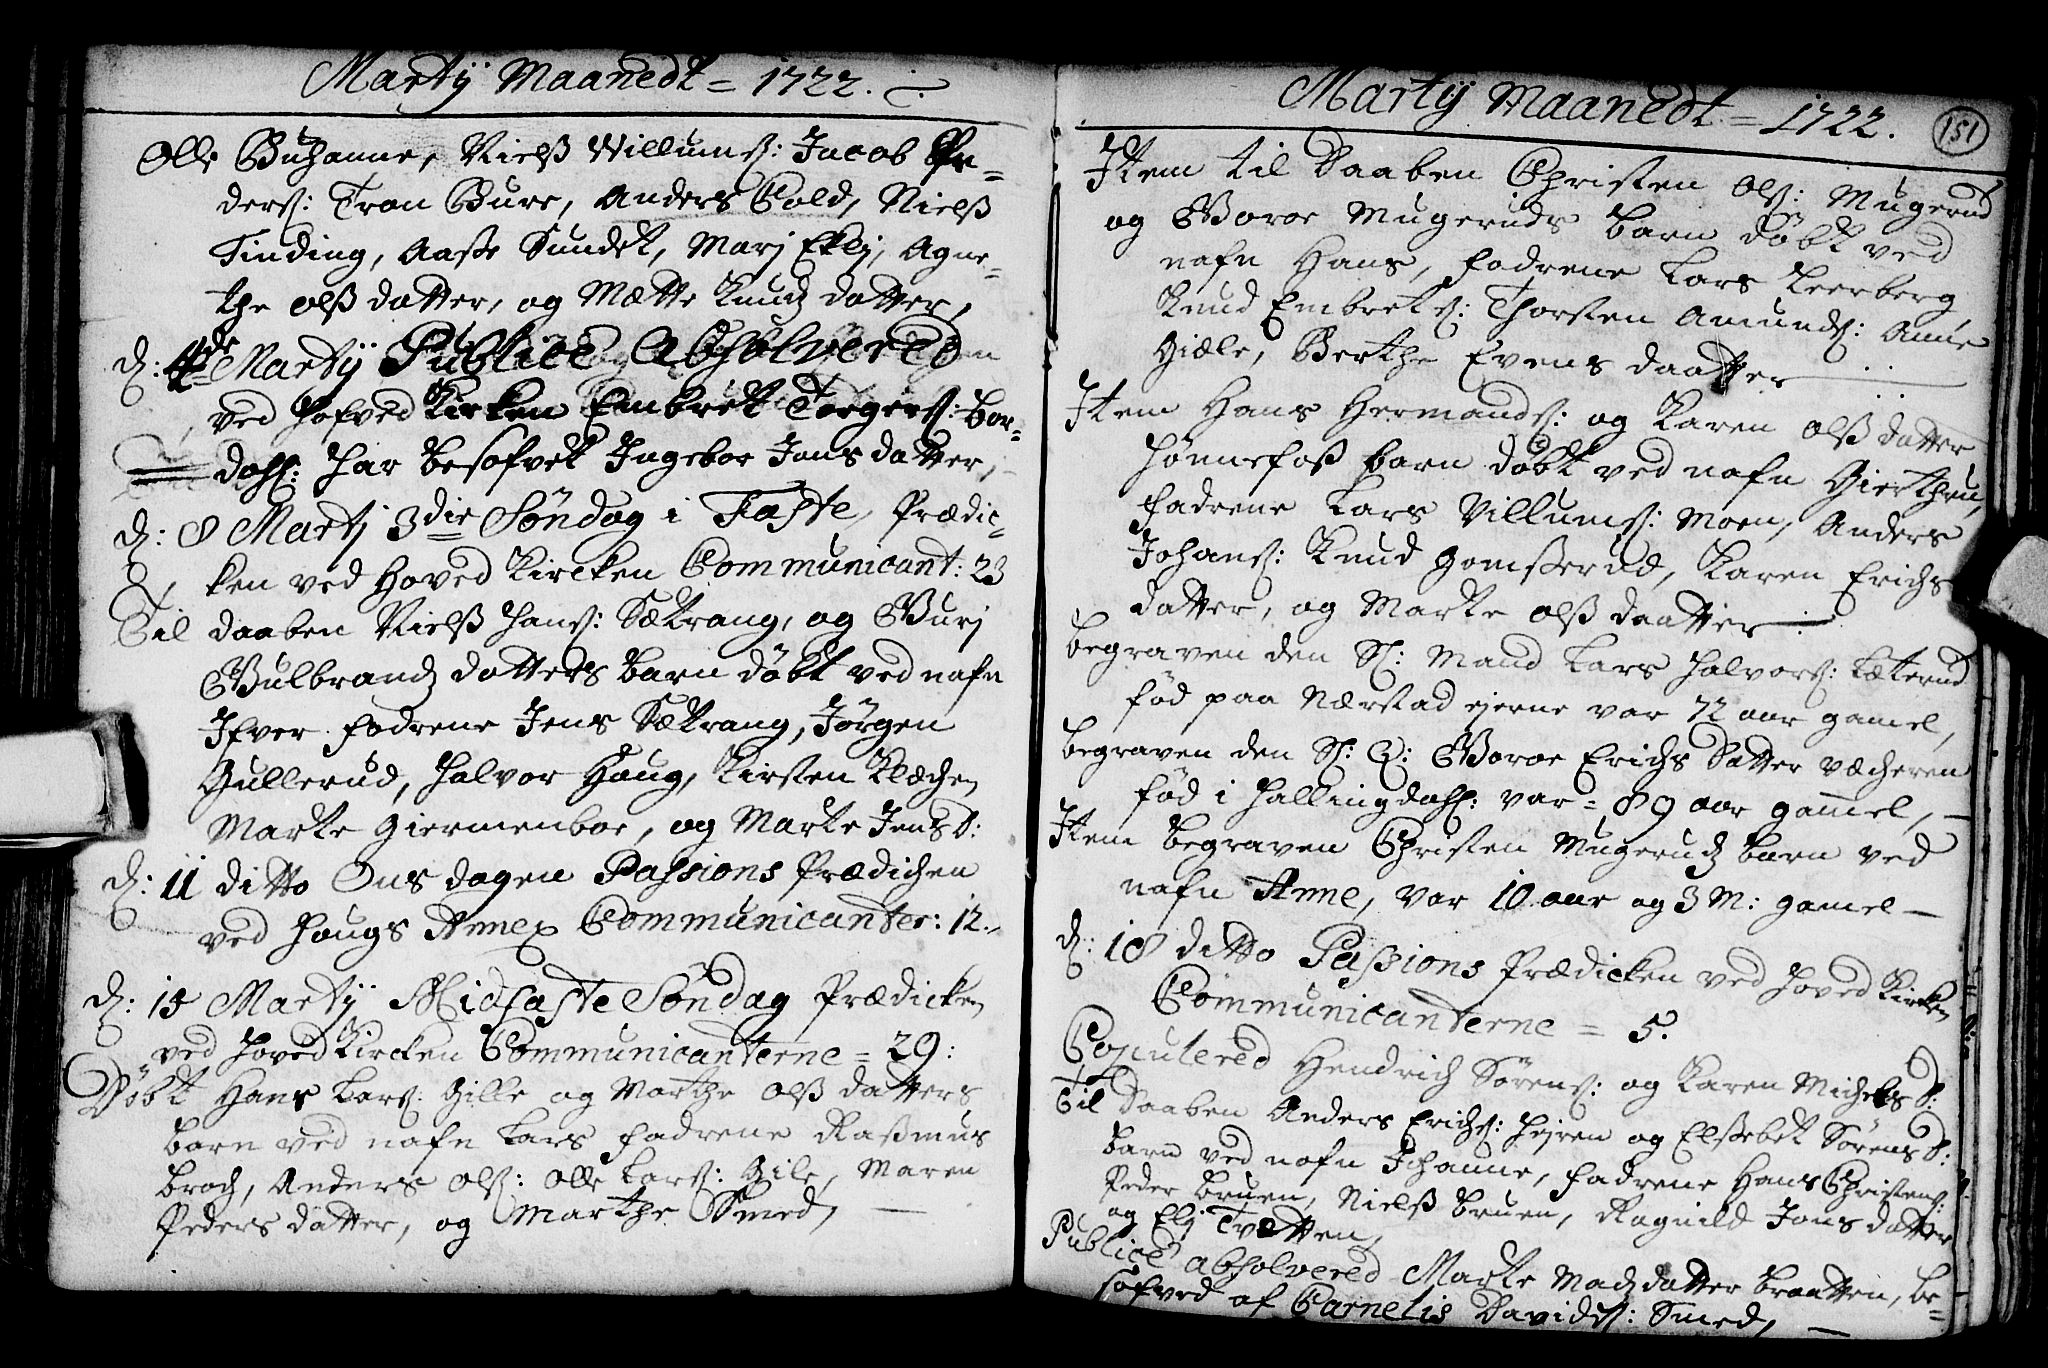 Martÿ Maanedt = 1722.
Olle Buhaune, Nielß Willumß: Jacob Pe=
derß: Tron Bure, Anders Cold, Nielß
Finding, Aaste Sundet, Marj Eklj, Agne=
the olß datter, og Mætte Knudz datter,
d: 4de Martÿ Publice Absolvered
ved hofved Kirken Embret Torgerß: bor=
dahl: har besofvet Ingebor Jens datter,
d: 8 Martj 3die Søndag i Faste, Prædic=
ken ved Hoved Kircken Communicant: 23
Til daaben Nielß Hanß: Sætrang, og Gurj
Gulbrandz datters barn døbt ved nafn
Ifver. fadrene Jens Sætrang, Jørgen
Gullerud, Halvor Houg, Kirsten Klæchen
Marte Giermenboe, og Marte Jens D:
d: 11 ditto Onsdagen Passions Prædichen
ved Hougs Annex Communicanter: 12.
d: 15 Martÿ Midfaste Søndag Prædicken
ved Hoved Kircken Communicanterne = 29:
Døbt Hans Larß: Gille og Marthe olß datters
barn ved nafn Lars fadrene Raßmus
broch, Anders olß: Olle Larß: Gile, Maren
Peders datter, og Marthe Smed,
Martÿ Maanedt = 1722.
151
Item til Daaben Christen olß: Mugerud
og Goroe Mugeruds barn døbt ved
nafn Hans, fadrene Lars Leerberg,
Knud Embretß: Thorsten Amundß: Anne
Giæle, Berthe Evens daatter
Item Hans Hermandß: og Karen olß datter
Hønnefoß barn døbt ved nafn Gierthru,
fadrene Lars Villumß: Moen, Anders
Johanß: Knud Gomßerud, Karen Erichs
datter, og Marte olß daatter
begraven den Sl: Mand Lars Halvorß: Læterud
fød paa Nærstad ejerne var 72 aar gamel,
begraven den Sl: Q: Goroe Erichs Datter Væcheren
fød i Hallingdahl: var = 89 aar gammel,
Item begraven Christen Mugerudz barn ved
nafn Anne, var 10 aar og 3 M: gamel
d: 18 ditto Paßions Prædicken ved Hoved Kircken
Communicanterne = 5.
Copulered Hendrich Sørenß: og Karen Michels D:
Til Daaben Anders Erichß: Hejren og Elßebet Sørens D:
barn ved nafn Johanne, fadrene Hans Christenß:
Peder bruen, Nielß bruen, Ragnild Jens datter
og Elj Tvætten,
Publicè absolvered Marte Madz datter braatten, be=
sofved af Carnelis Davidß: Smed,